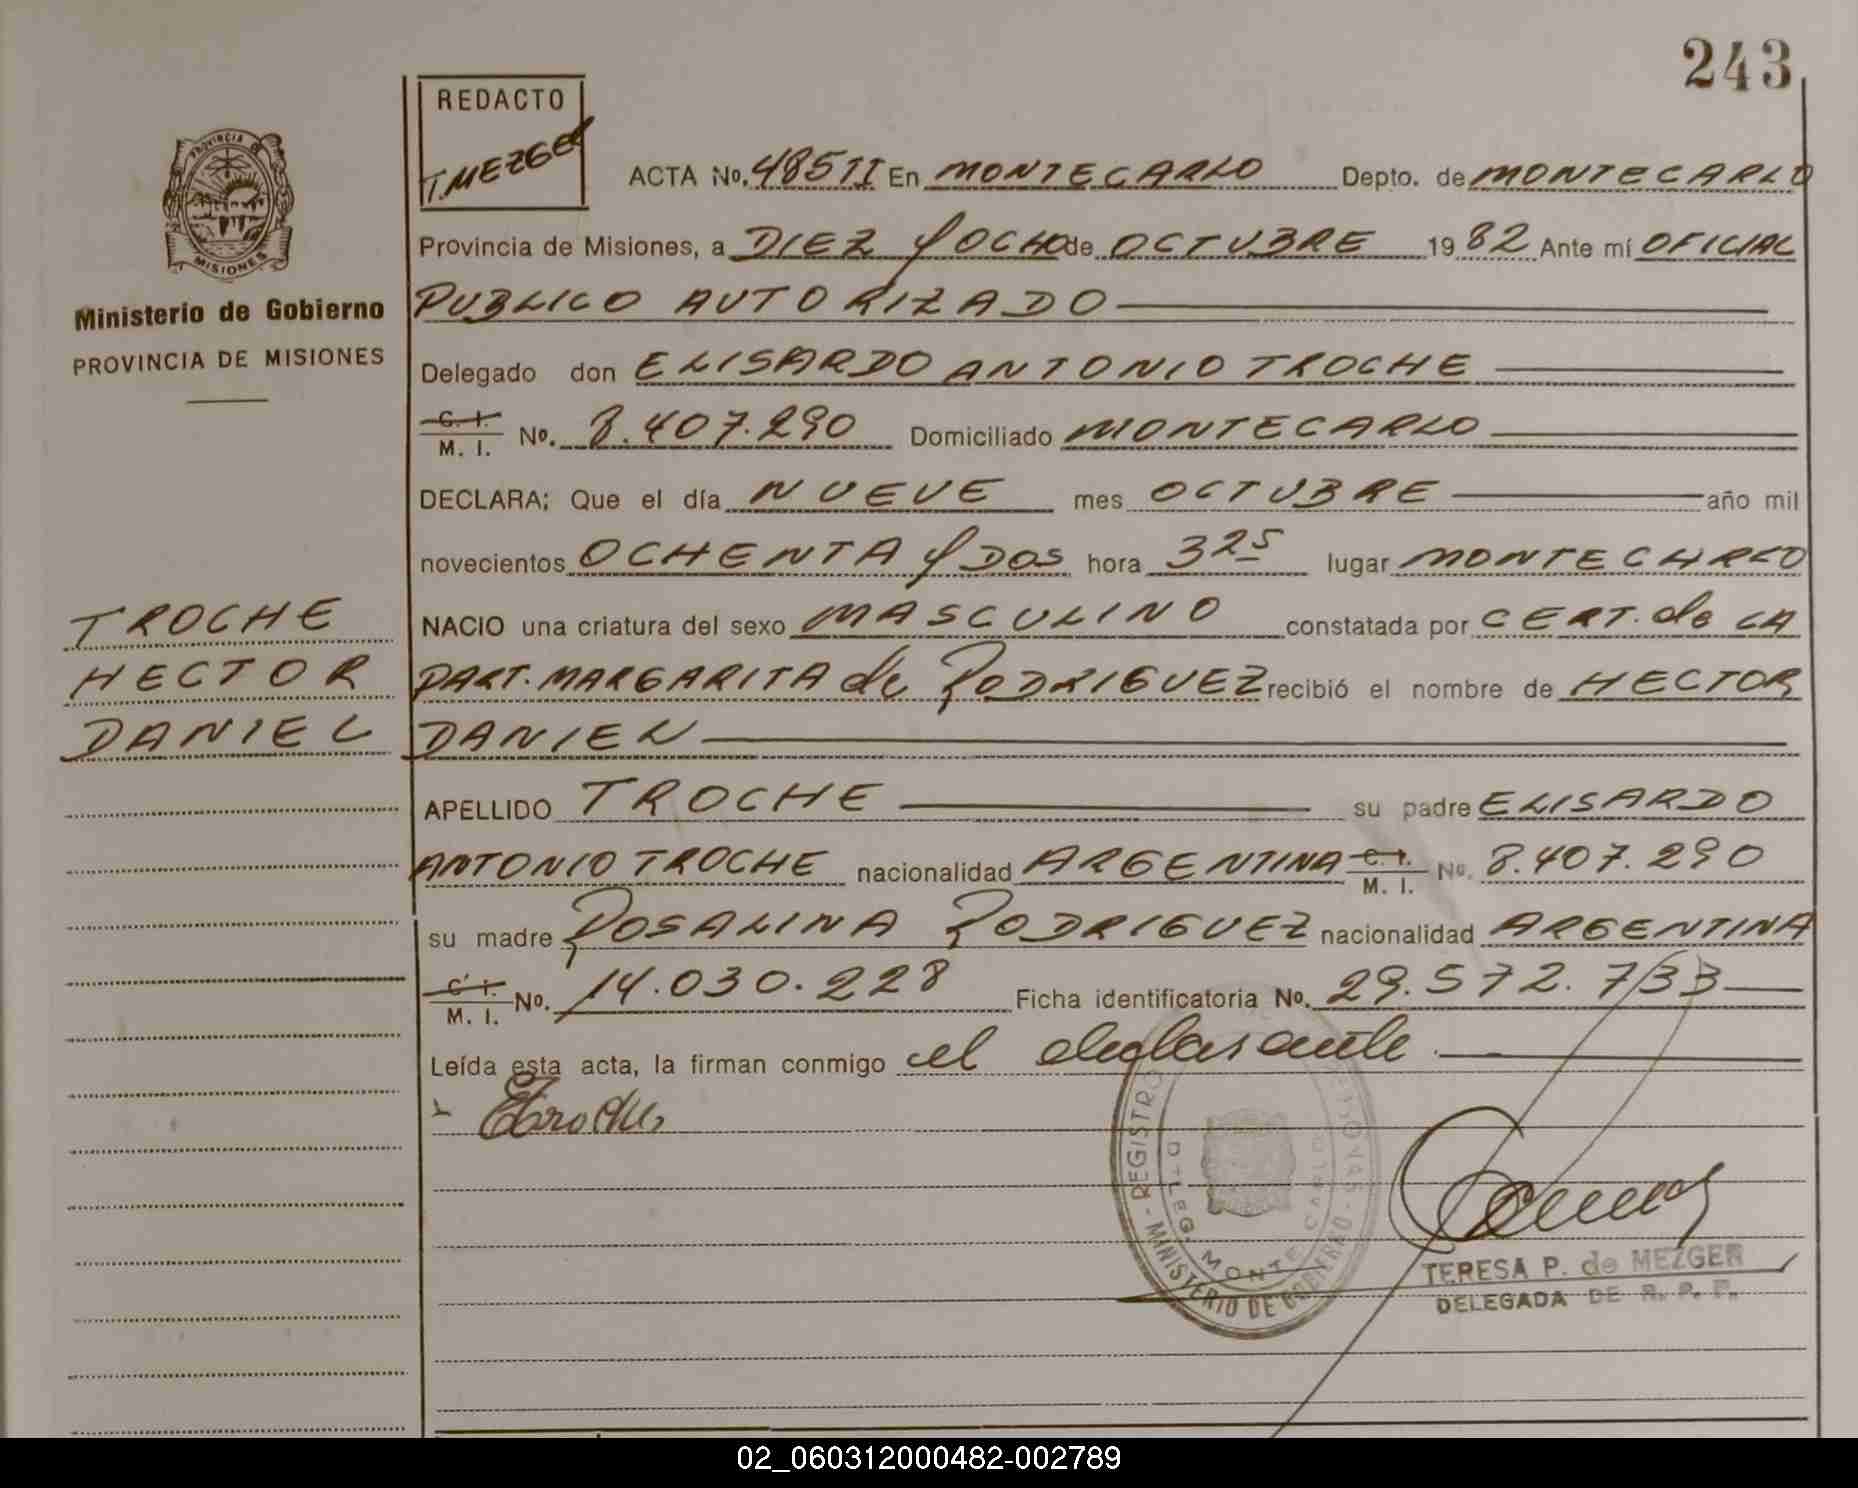 243
REDACTO
T. MEZGER
PROVINCIA DE
MISIONES
Ministerio de Gobierno
PROVINCIA DE MISIONES
ACTA No. 485 II En MONTECARLO Depto. de MONTECARLO
Provincia de Misiones, a DIEZ y OCHO de OCTUBRE 1982 Ante mí OFICIAL
PUBLICO AUTORIZADO
Delegado don ELISARDO ANTONIO TROCHE
C. I.
M. I. No. 8.407.290 Domiciliado MONTECARLO
DECLARA; Que el día NUEVE mes OCTUBRE año mil
novecientos OCHENTA y DOS hora 3 25 lugar MONTECARLO
TROCHE
HECTOR
DANIEL
NACIO una criatura del sexo MASCULINO constatada por CERT. de LA
PART. MARGARITA de RODRIGUEZ recibió el nombre de HECTOR
DANIEL
APELLIDO TROCHE su padre ELISARDO
ANTONIO TROCHE nacionalidad ARGENTINA C. I. M. I. No. 8.407.290
su madre ROSALINA RODRIGUEZ nacionalidad ARGENTINA
C. I.
M. I. No. 14.030.228 Ficha identificatoria No. 29.572.733
Leída esta acta, la firman conmigo el declarante
ETroche
REGISTRO
MINISTERIO DE GOBIERNO
DELEG. MONTECARLO
TERESA P. de MEZGER
DELEGADA DE R. P. P.
02_060312000482-002789